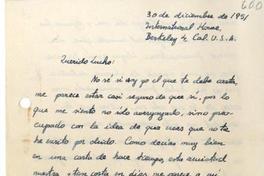 600
30 de diciembre de 1951
International House,
Berkeley 4, Cal. U.S.A.
Querido Lucho:
No sé si soy yo el que te debe carta,
me parece estar casi seguro de que sí, por lo
que me siento no sólo avergonzado, sino preo-
cupado con la idea de que creas que no te
he escrito por olvido. Como decías muy bien
en una carta de hace tiempo, esta amistad
nuestra